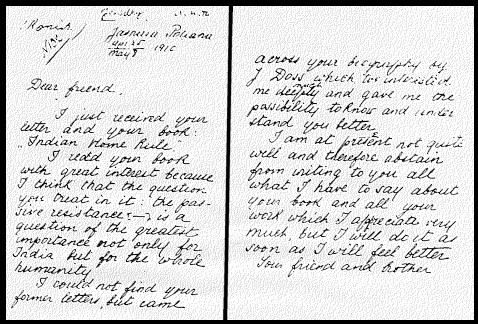 Jasnaia Poliana
May 8 1910
Dear friend.
I just received your
letter and your book:
"Indian Home Rule"
I read your book
with great interest because
I think that the question
you treat in it: the pas-
sive resistance — is a
question of the greatest
importance not only for
India but for the whole
humanity
I could not find your
former letters, but came
across your biography by
J Doss which too interested
me deeply and gave me the
possibility to know and under
stand you better.
I am at present not quite
well and therefore abstain
from writing to you all
what I have to say about
your book and all your
work which I appreciate very
much, but I will do it as
soon as I will feel better
Your friend and brother